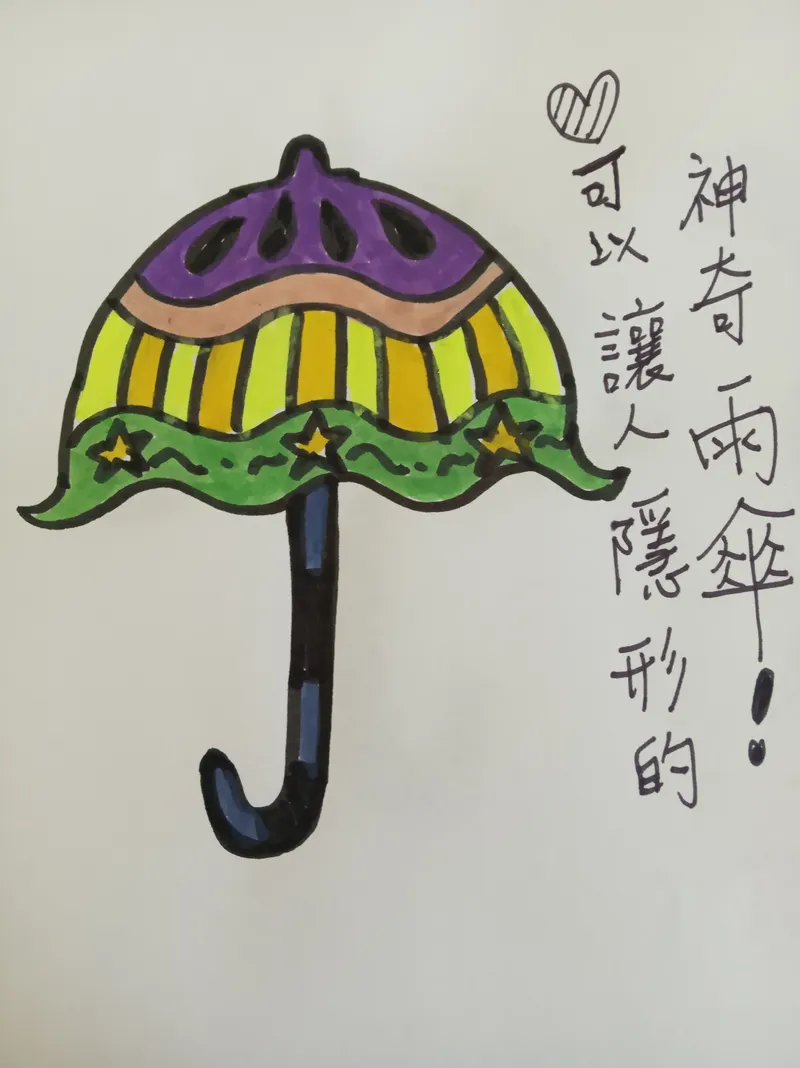 可以讓人隱形的
神奇雨傘！